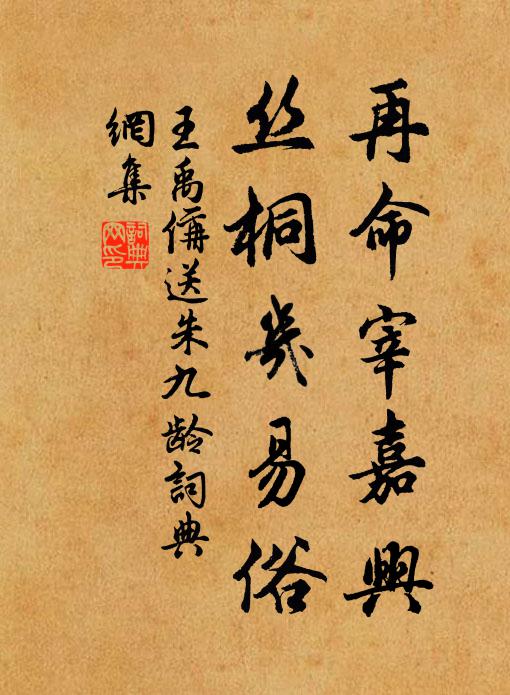 再命宰嘉興
丝桐典易俗
王禹偁送朱九龄詞典
網集
詞典網印